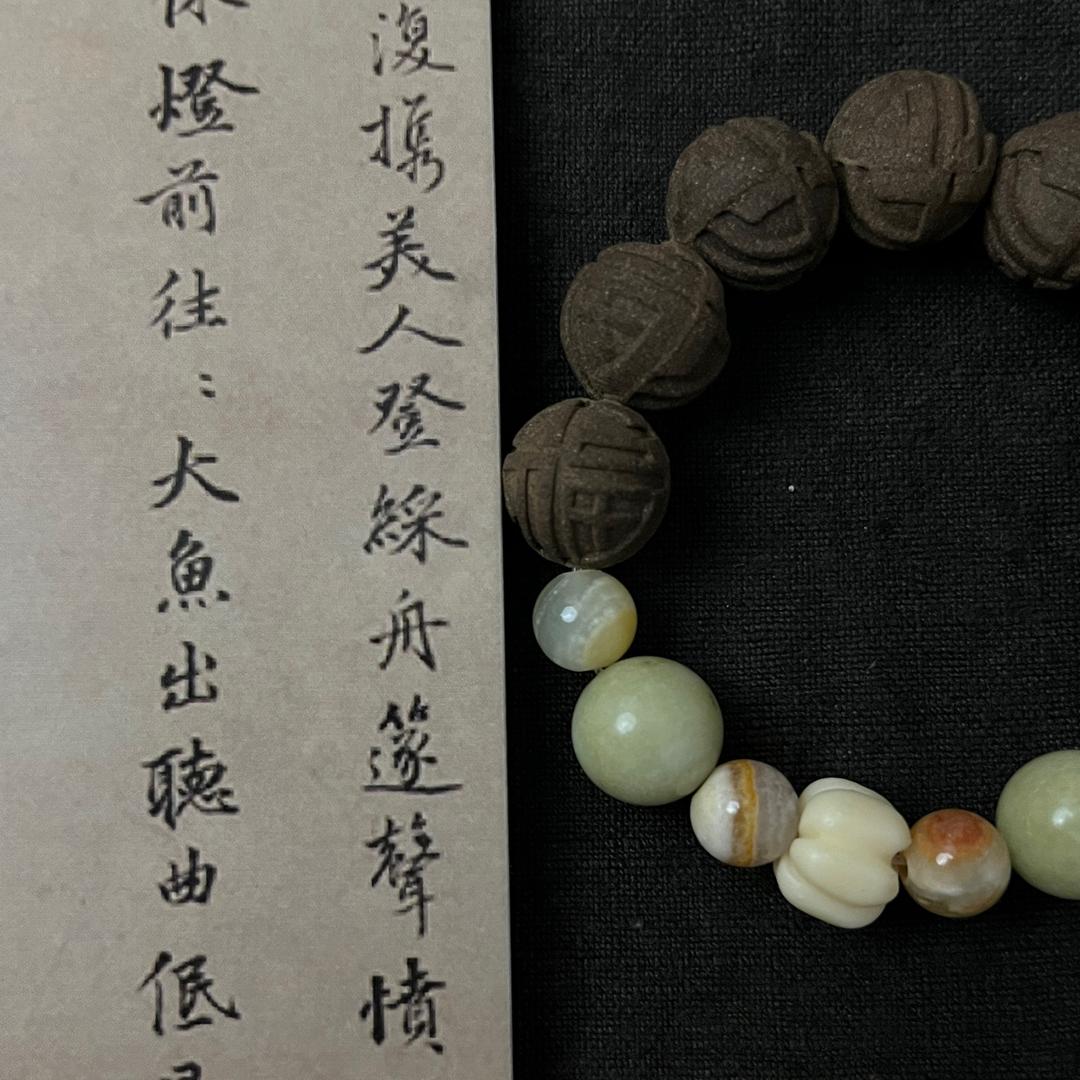 復携美人登綵舟籩聲憤
燈前往：大魚出聽曲低